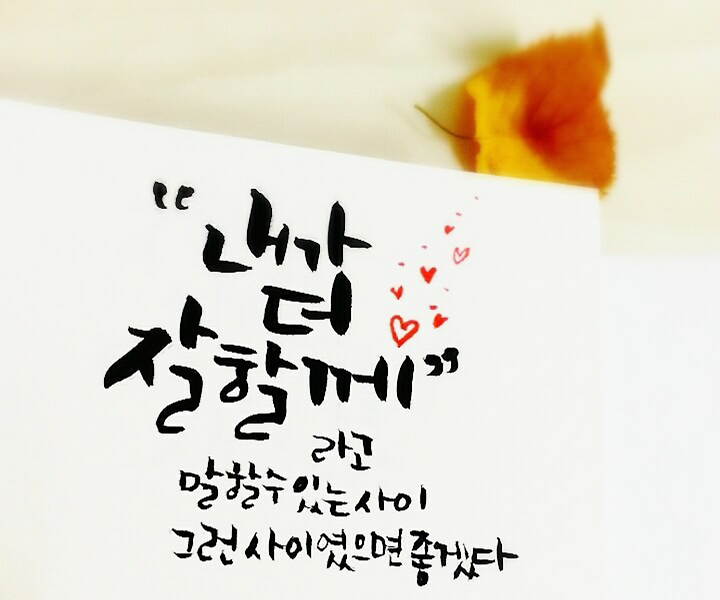 “내가
더
잘할께”
라고
말할수있는사이
그런사이였으면좋겠다